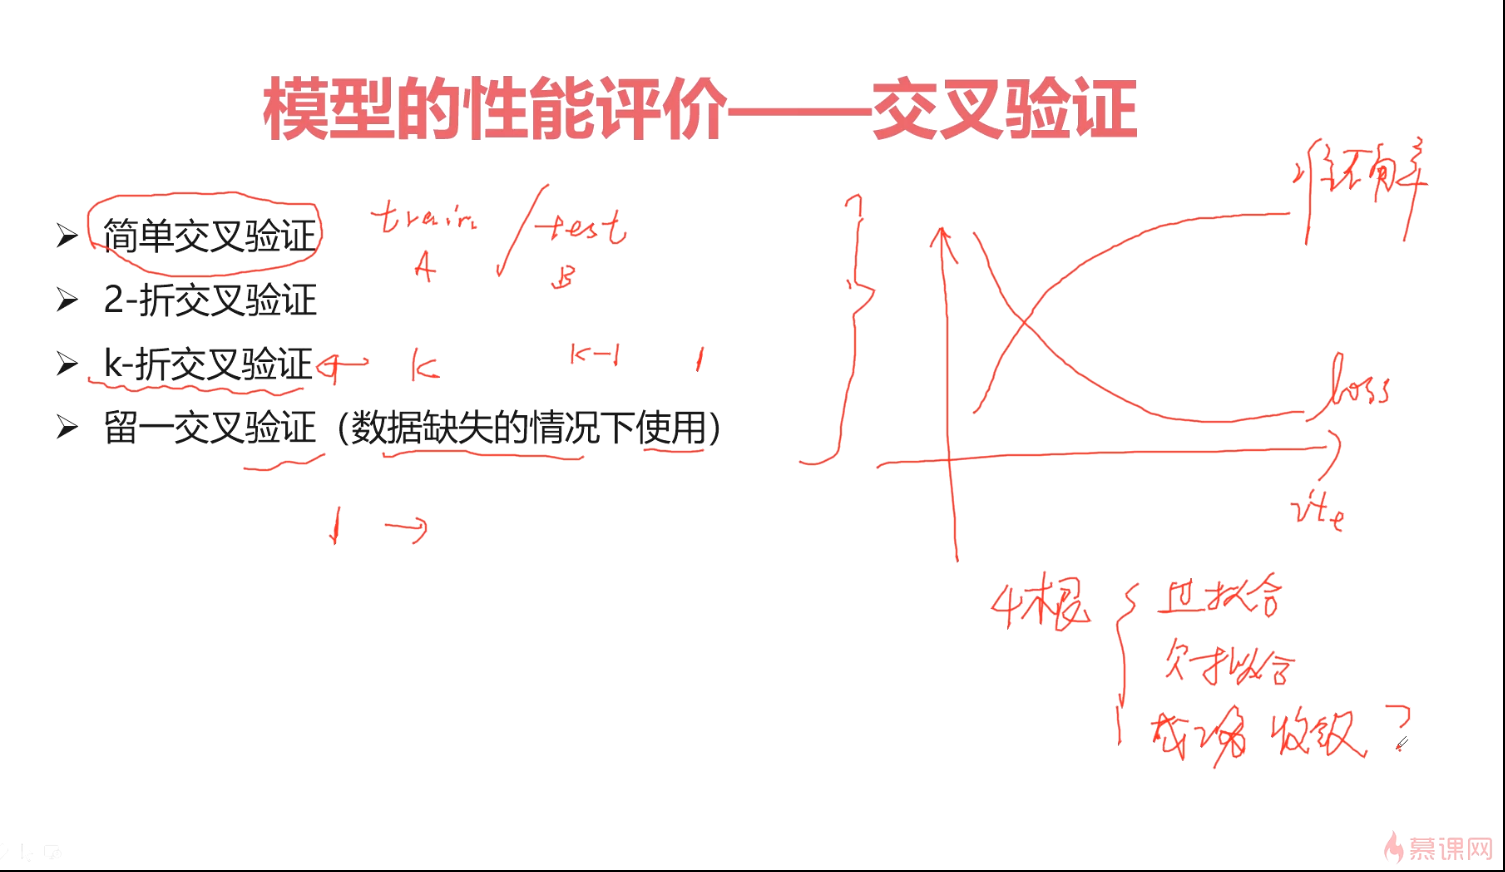 模型的性能评价——交叉验证
准确率
简单交叉验证 train / test
A B
2-折交叉验证
k-折交叉验证 k k-1 1
留一交叉验证（数据缺失的情况下使用）
loss
ite
1 →
4根 过拟合
欠拟合
成功 收敛 ?
慕课网